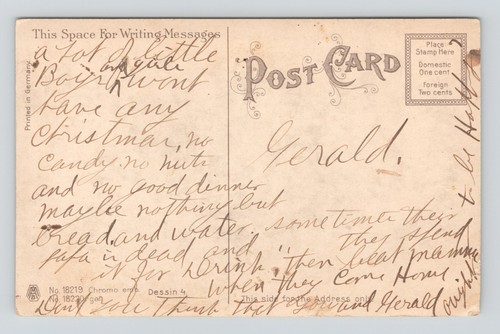 This Space For Writing Messages
a Lot of little
Boys and girls wont
have any
Christmas, no
candy. no nuts
and no good dinner
maybe nothing but
bread and water. sometimes their
papa is dead and they spend
it for Drink" then beat mamma
when they come Home at night
Dont you think that you and Gerald
to be Happy
POST CARD
Place
Stamp Here
Domestic
One cent
Foreign
Two cents
Printed in Germany
Gerald.
No. 18219 Chromo
No. 18220
Dessin 4
This side for the Address only